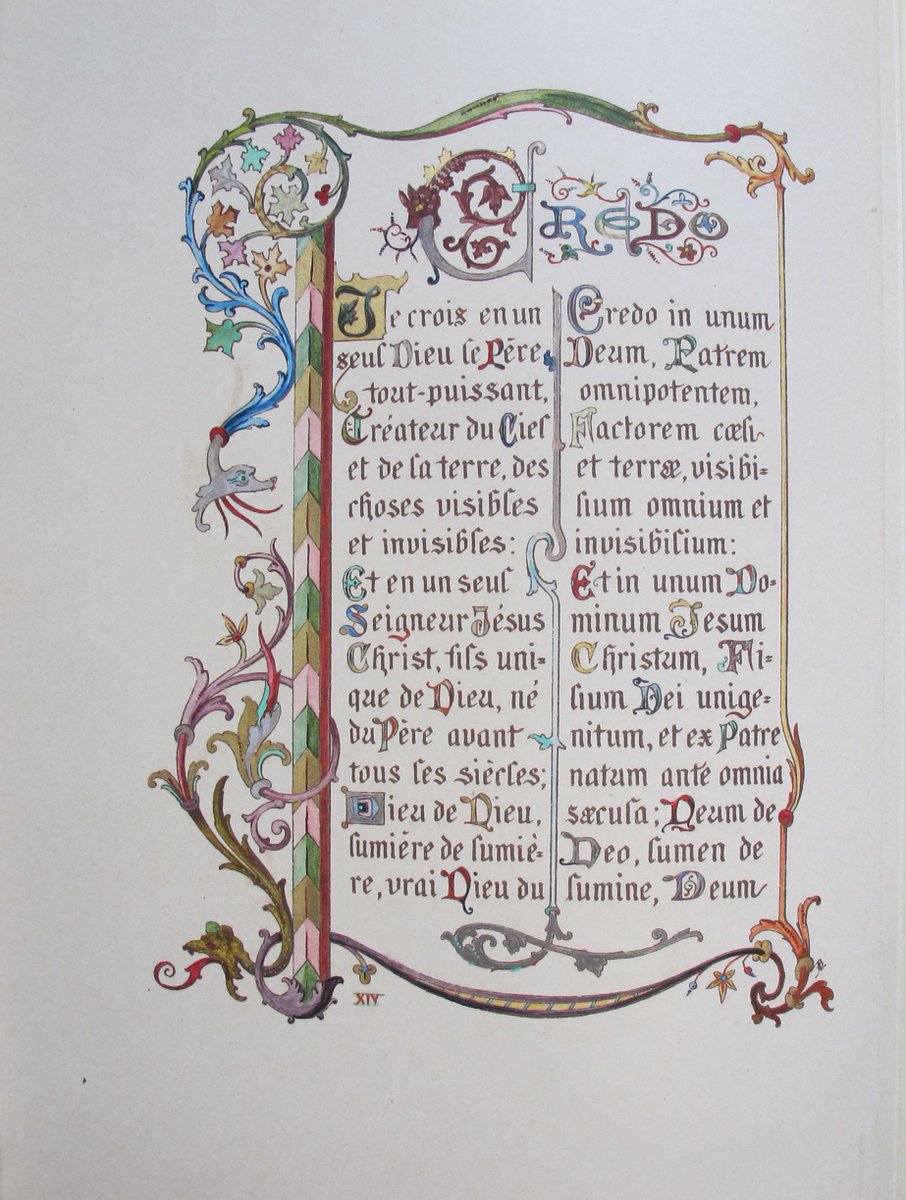 CREDO
Je crois en un
seul Dieu le Père
tout-puissant,
Créateur du Ciel
et de la terre, des
choses visibles
et invisibles:
Et en un seul
Seigneur Jésus
Christ, fils uni-
que de Dieu, né
du Père avant
tous les siècles;
Dieu de Dieu,
lumiére de lumiè-
re, vrai Dieu du
Credo in unum
Deum, Patrem
omnipotentem,
Factorem cœli
et terræ, visibi-
lium omnium et
invisibilium:
Et in unum Do-
minum Jesum
Christum, Fi-
lium Dei unige-
nitum, et ex Patre
natum ante omnia
sæcula; Deum de
Deo, lumen de
lumine, Deum
XIV